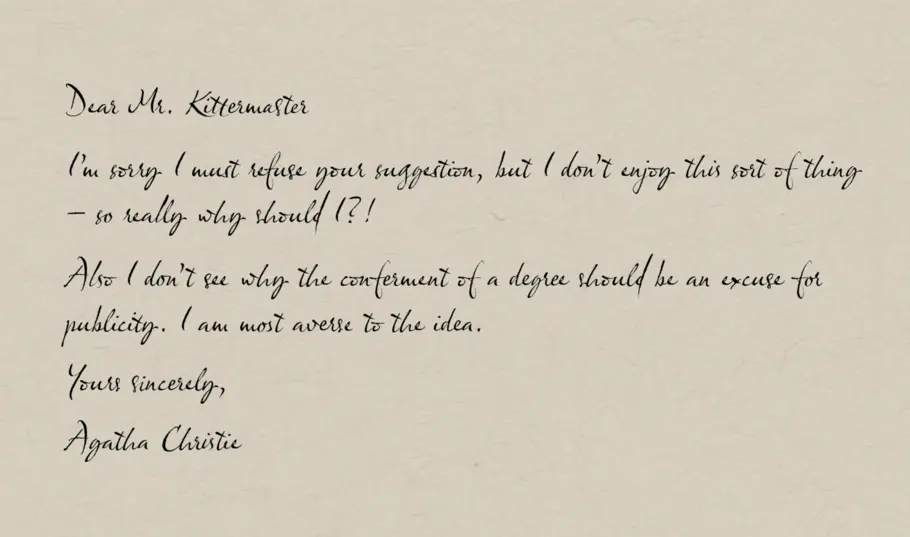 Dear Mr. Kittermaster
I'm sorry I must refuse your suggestion, but I don't enjoy this sort of thing
– so really why should I?!
Also I don't see why the conferment of a degree should be an excuse for
publicity. I am most averse to the idea.
Yours sincerely,
Agatha Christie